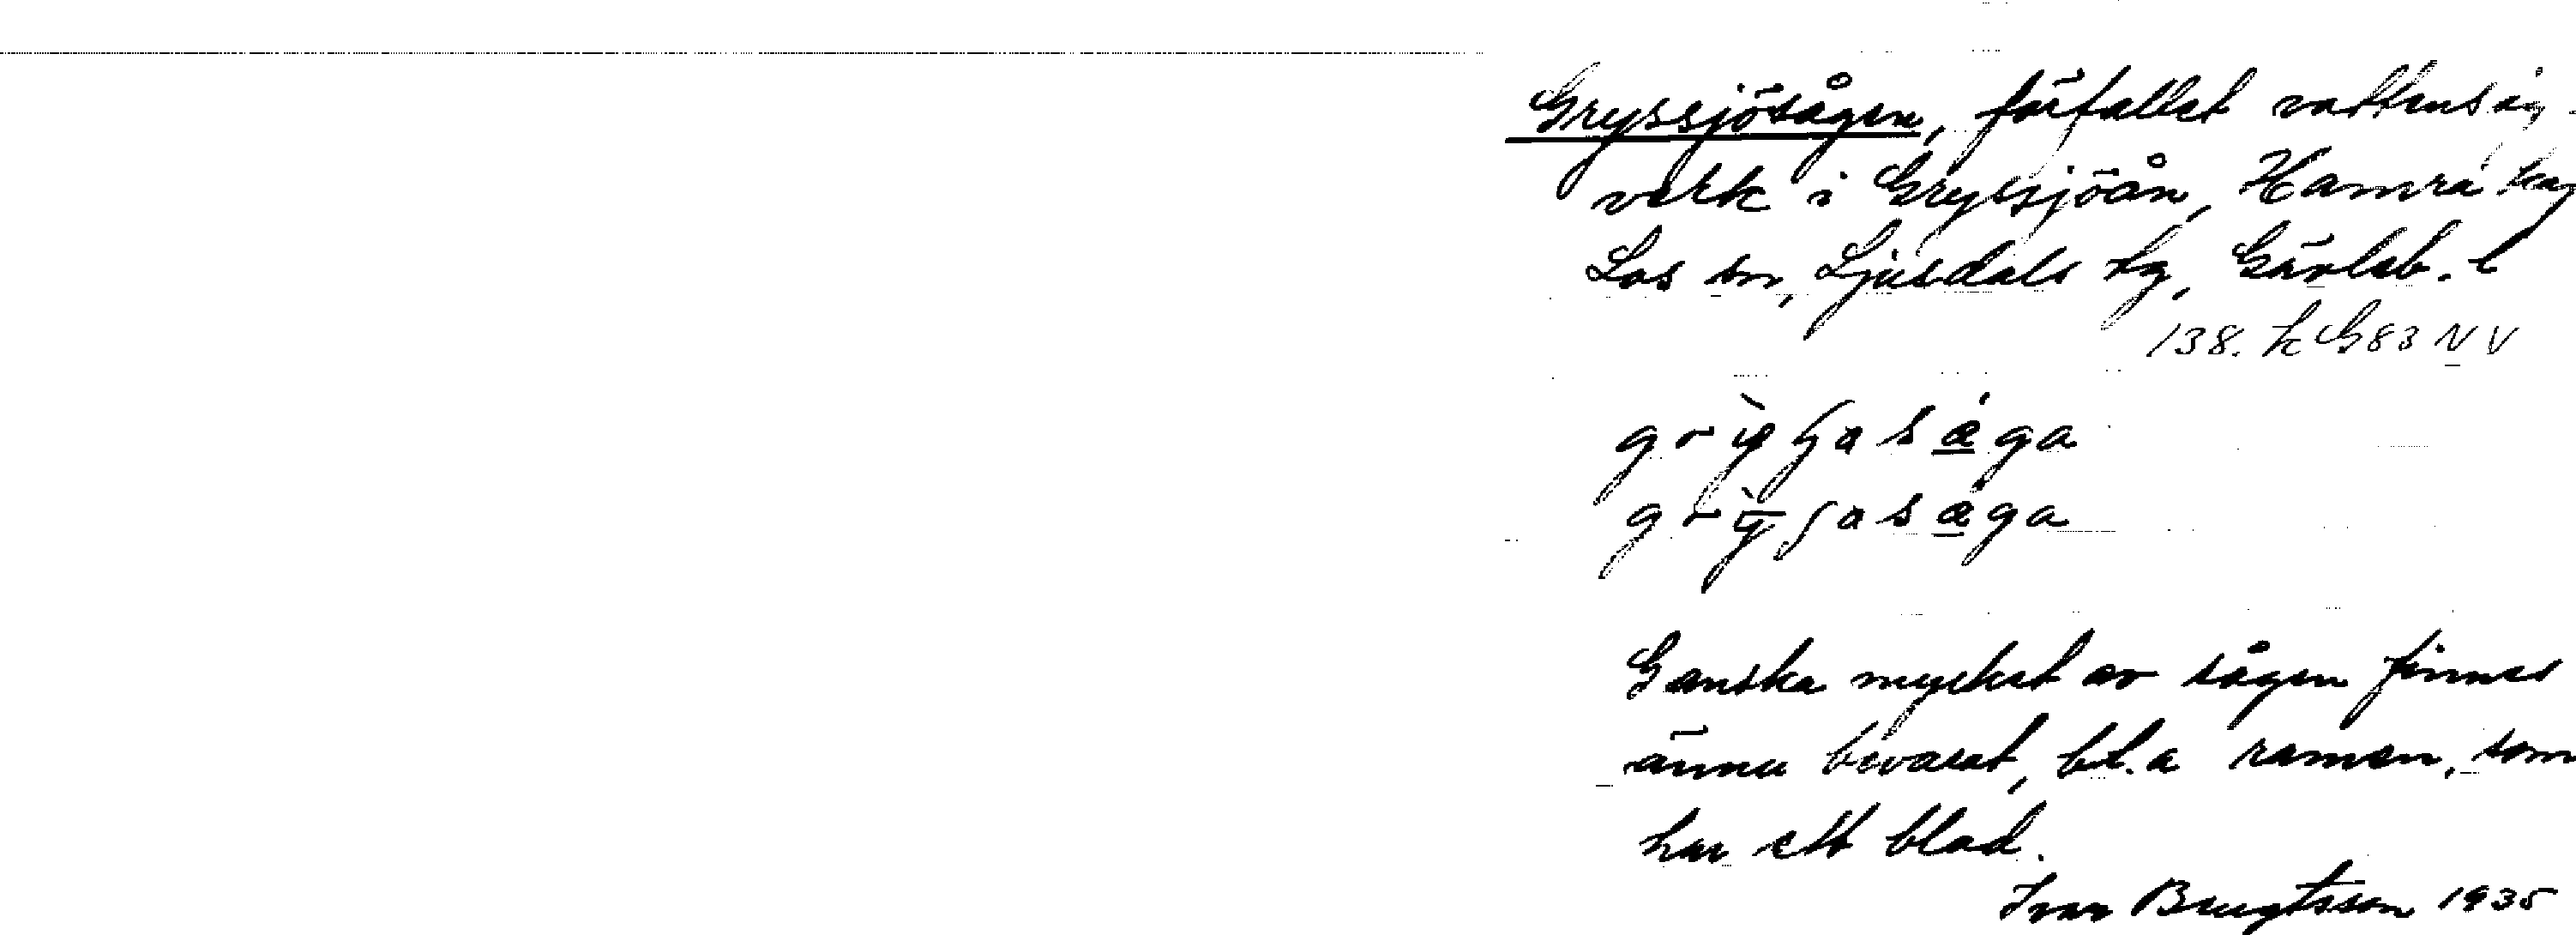 Gryssjösågen, förfallet vattensåg-
verk i Gryssjöån, Hamra kap
Los sn, Ljusdals tg, Gävleb. l
138. k G83 NV
Ganska mycket av sågen finnes
ännu bevarat, bl.a ramen, som
har ett blad.
Ivar Bengtsson 1935